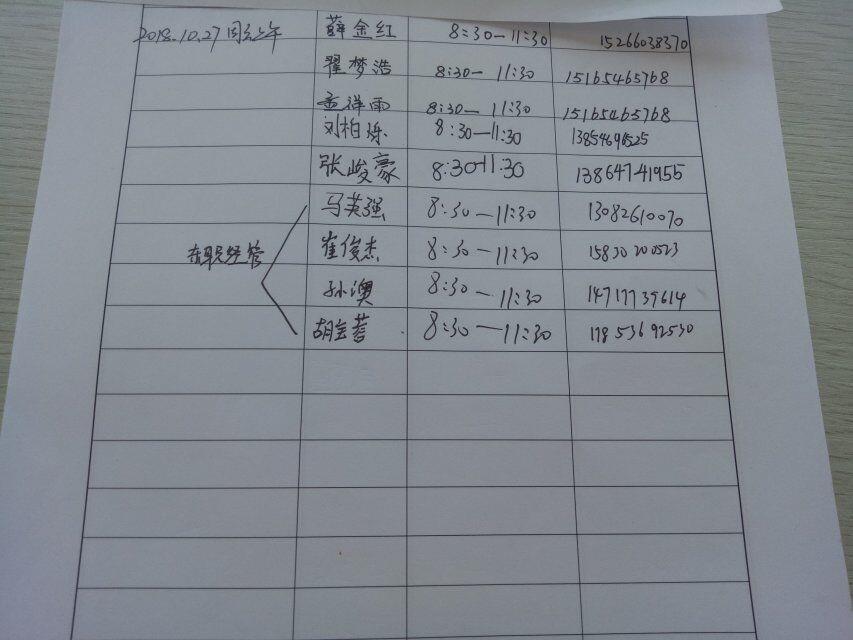 2018.10.27周六上午 薛金红 8:30-11:30 15266038370
翟梦浩 8:30-11:30 15165465768
孟祥雨 8:30-11:30 15165465768
刘柏栋 8:30-11:30
张峻豪 8:30-11:30 13864741955
马英强 8:30-11:30 13082610070
在职经管 崔俊杰 8:30-11:30 15830200523
孙澳 8:30-11:30 14717739614
胡金蓉 8:30-11:30 17853692530